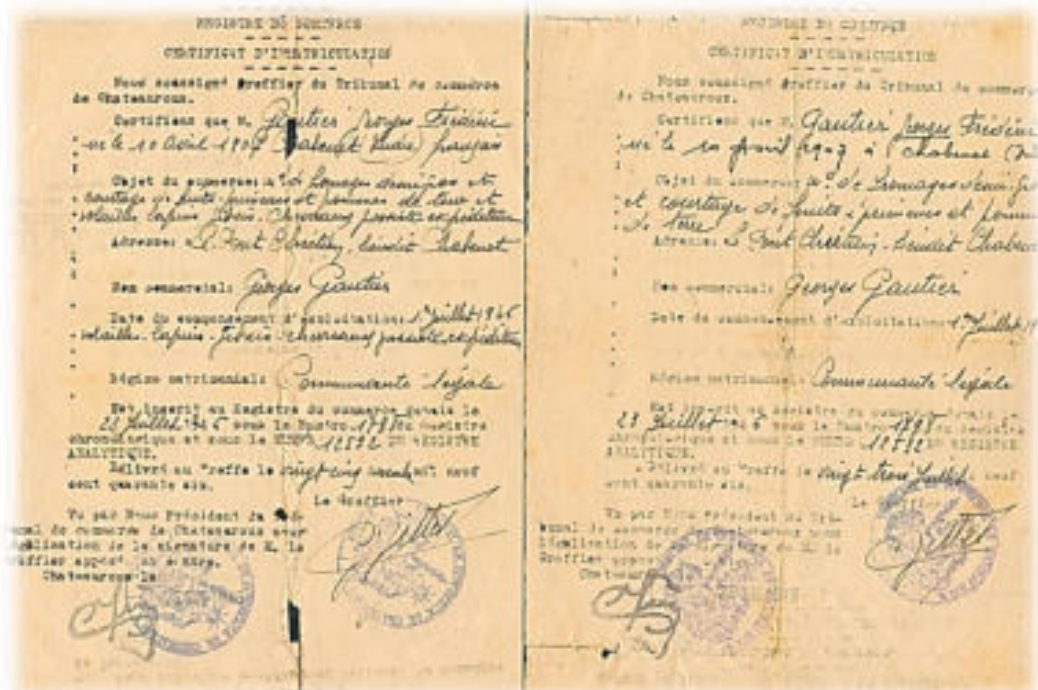 REGISTRE DU COMMERCE
CERTIFICAT D'IMMATRICULATION
Nous soussigné Greffier du Tribunal de commerce
de Chateauroux.
Certifions que M. Gautier Georges Frédéric
né le 10 Avril 190 Chabenet (Indre) français
Objet du commerce: Md de fromages demi-gros et
courtage de fruits primeurs et pommes de terre et
volailles lapins gibiers chevreaux expéditeur
Adresse: Le Pont Chrétien, lieudit Chabenet
Nom commercial: Georges Gautier
Date du commencement d'exploitation: 1er Juillet 1946
volailles lapins gibiers chevreaux expéditeur
Régime matrimonial: Communauté légale
Est inscrit au Registre du commerce depuis le
23 Juillet 1946 sous le Numéro 1798 du Registre
chronologique et sous le NUMERO 12592 DU REGISTRE
ANALYTIQUE.
Délivré au Greffe le vingt cinq mil neuf
cent quarante six.
Le Greffier
Vu par Nous Président du Tri-
bunal de commerce de Chateauroux pour
légalisation de la signature de M. le
Greffier
Chateauroux le
REGISTRE DU COMMERCE
CERTIFICAT D'IMMATRICULATION
Nous soussigné Greffier du Tribunal de commerce
de Chateauroux.
Certifions que M. Gautier Georges Frédéric
né le 10 Avril 1907 à Chabenet
Objet du commerce: Md de fromages demi-gros
et courtage de fruits primeurs et pommes
de terre
Adresse: Le Pont Chrétien, lieudit Chabenet
Nom commercial: Georges Gautier
Date du commencement d'exploitation: 1er Juillet
Régime matrimonial: Communauté légale
Est inscrit au Registre du commerce depuis le
23 Juillet 1946 sous le Numéro 1798 du Registre
chronologique et sous le NUMERO 12592 DU REGISTRE
ANALYTIQUE.
Délivré au Greffe le vingt trois Juillet neuf
cent quarante six.
Le Greffier
Vu par Nous Président du Tri-
bunal de commerce de Chateauroux pour
légalisation de la signature de M. le
Greffier
Chateauroux